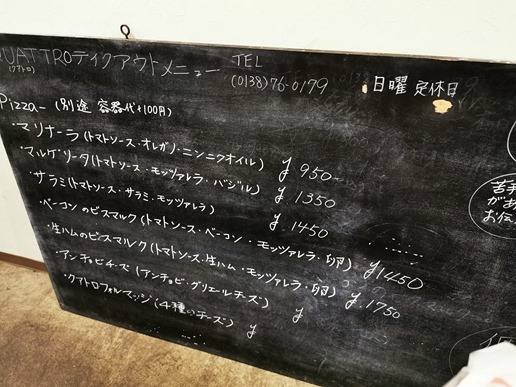 QUATTROテイクアウトメニュー
(クアトロ)
TEL
(0138)76-0179
日曜 定休日
Pizza- (別途 容器代+100円)
・マリナーラ(トマトソース・オレガノ・ニンニクオイル) ¥950-
・マルゲリータ(トマトソース・モッツァレラ・バジル) ¥1350
・サラミ(トマトソース・サラミ・モッツァレラ) ¥1450
・ベーコンのビスマルク(トマトソース・ベーコン・モッツァレラ・卵) ¥1450
・生ハムのビスマルク(トマトソース・生ハム・モッツァレラ・卵) ¥1750
・アンチョビチーズ(アンチョビ・グリエールチーズ) ¥
・クアトロフォルマッジ(4種のチーズ) ¥
苦手
があ
お伝